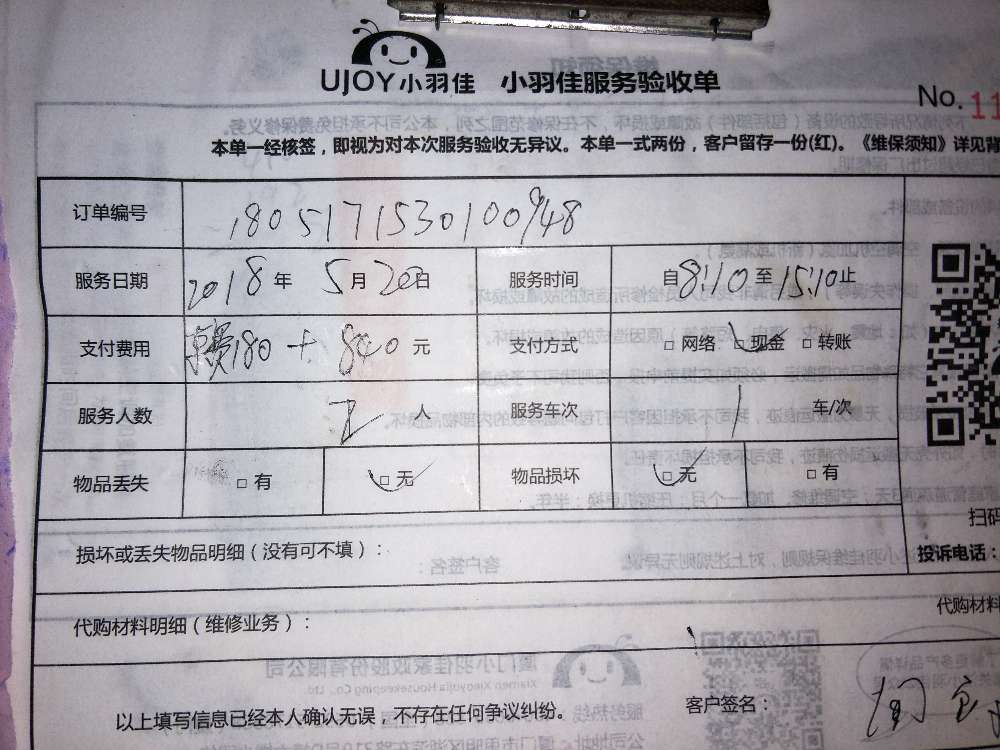 UJOY小羽佳 小羽佳服务验收单
No. 11
本单一经核签，即视为对本次服务验收无异议。本单一式两份，客户留存一份(红)。《维保须知》详见背
订单编号 180517153010948
服务日期 2018年 5月20日 服务时间 自8:10至15:10止
支付费用 车费180 + 840元 支付方式 □网络 □现金 □转账
服务人数 人 服务车次 1 车/次
物品丢失 □有 □无 物品损坏 □无 □有
扫码
损坏或丢失物品明细（没有可不填）：
投诉电话：
代购材料
代购材料明细（维修业务）：
客户签名：
以上填写信息已经本人确认无误，不存在任何争议纠纷。